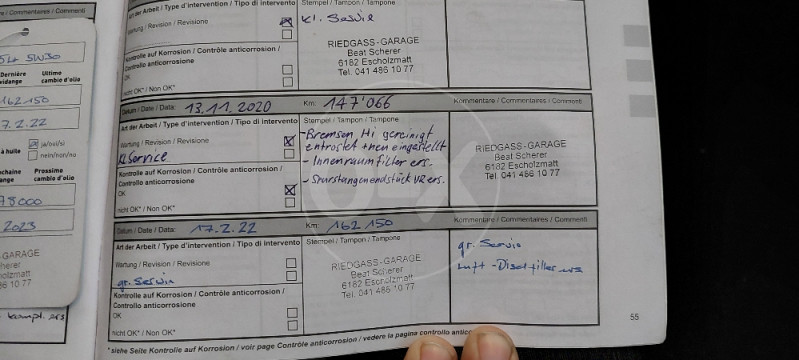 e / Commentaires / Commenti
5W30
Dernière
vidange
Ultimo
cambio d'olio
162 150
7.2.22
à huile
ja/oui/sì
nein/non/no
Prossimo
cambio d'olio
78000
2023
-GARAGE
Art der Arbeit / Type d'intervention / Tipo di intervento
Wartung / Revision / Revisione
Kontrolle auf Korrosion / Contrôle anticorrosion /
Controllo anticorrosione
OK
nicht OK* / Non OK*
Stempel / Tampon / Tampone
Kl. Service
RIEDGASS-GARAGE
Beat Scherer
6182 Escholzmatt
Tel. 041 486 10 77
Datum / Date / Data: 13.11.2020 Km: 147'066 Kommentare / Commentaires / Commenti
Art der Arbeit / Type d'intervention / Tipo di intervento
Wartung / Revision / Revisione
Kl Service
Kontrolle auf Korrosion / Contrôle anticorrosion /
Controllo anticorrosione
OK
nicht OK* / Non OK*
Stempel / Tampon / Tampone
- Bremsen Hi gereinigt
entrostet + neu eingestellt
- Innenraumfilter ers.
- Spurstangenendstück VR ers.
RIEDGASS-GARAGE
Beat Scherer
6182 Escholzmatt
Tel. 041 486 10 77
Datum / Date / Data: 17.2.22 Km: 162 150 Kommentare / Commentaires / Commenti
Art der Arbeit / Type d'intervention / Tipo di intervento
Wartung / Revision / Revisione
gr. Servic
Kontrolle auf Korrosion / Contrôle anticorrosion /
Controllo anticorrosione
OK
nicht OK* / Non OK*
Stempel / Tampon / Tampone
RIEDGASS-GARAGE
Beat Scherer
6182 Escholzmatt
Tel. 041 486 10 77
gr. Servic
Luft - Diselfilter ers
55
*siehe Seite Kontrolle auf Korrosion / voir page Contrôle anticorrosion / vedere la pagina controllo anticorr